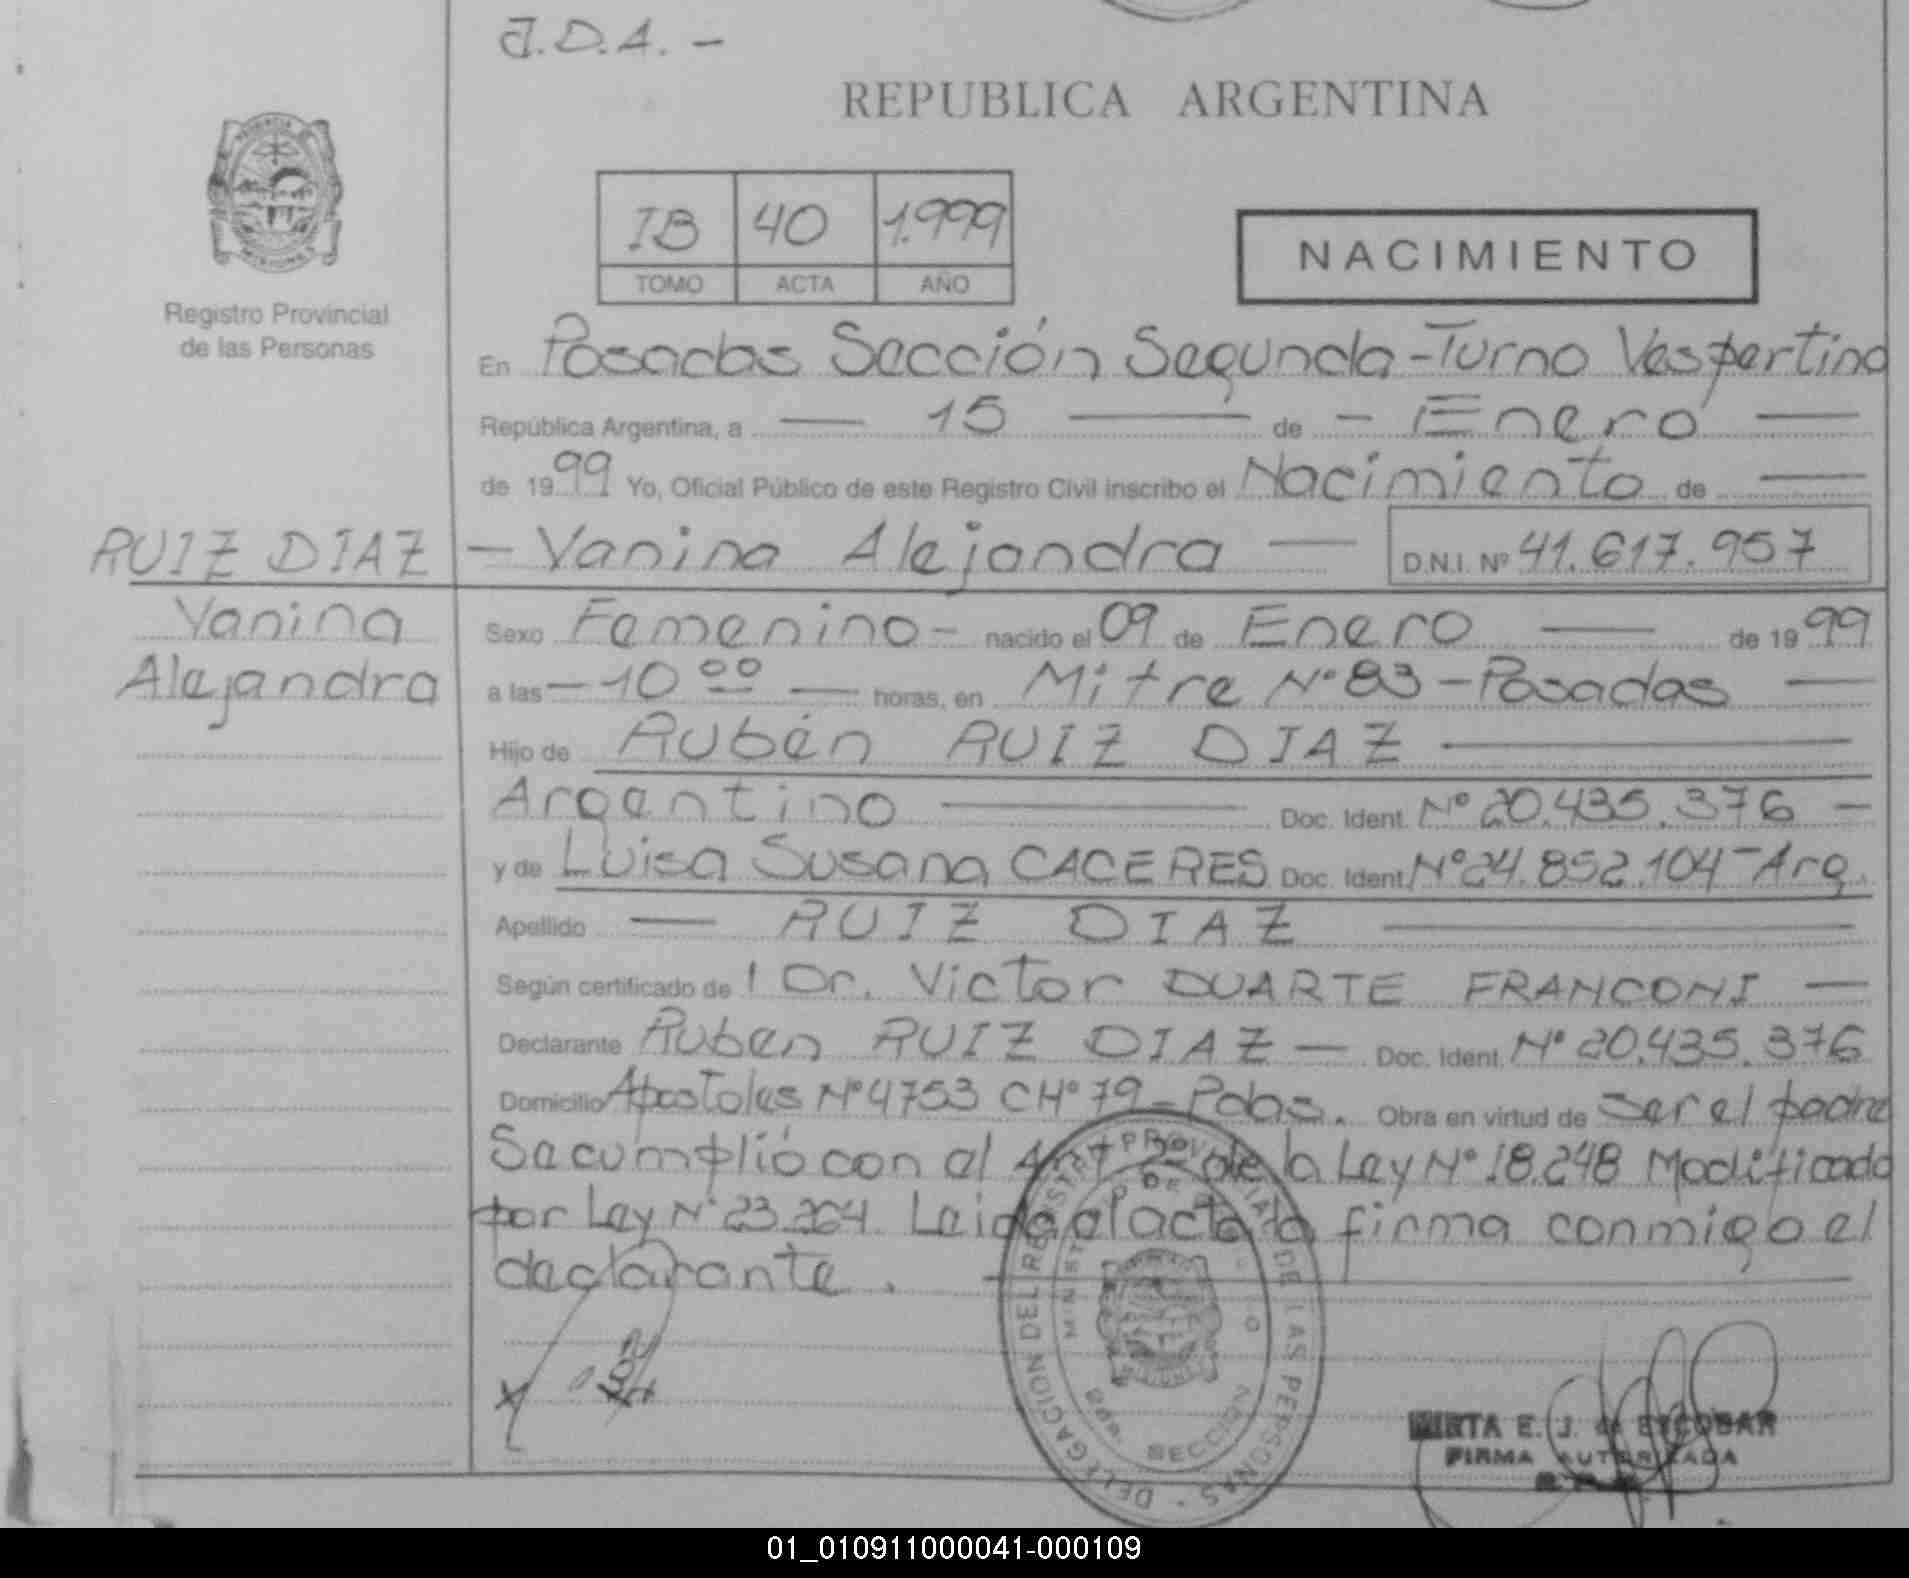 J.D.A. -
REPUBLICA ARGENTINA
IB 40 1.999
TOMO ACTA AÑO
NACIMIENTO
Registro Provincial
de las Personas
En Posadas Sección Segunda - Turno Vespertino
República Argentina, a — 15 — de - Enero —
de 1999 Yo, Oficial Público de este Registro Civil inscribo el Nacimiento de —
RUIZ DIAZ
Yanina
Alejandra
— Yanina Alejandra — D.N.I. Nº 41.617.957
Sexo Femenino - nacido el 09 de Enero — de 1999
a las — 10 00 — horas, en Mitre Nº 83 - Posadas —
Hijo de Rubén RUIZ DIAZ —
Argentino — Doc. Ident. Nº 20.435.376 —
y de Luisa Susana CACERES Doc. Ident. Nº 24.852.104 - Arg.
Apellido — RUIZ DIAZ —
Según certificado de l Dr. Victor DUARTE FRANCONI —
Declarante Ruben RUIZ DIAZ — Doc. Ident. Nº 20.435.376
Domicilio Apostoles Nº 4753 CHº 79 - Pdas. Obra en virtud de ser el padre
Se cumplió con el Art 2º de la Ley Nº 18.248 Modificado
por Ley Nº 23.264. Leida el acta la firma conmigo el
declarante. —
DELEGACION DEL REGISTRO PROVINCIAL DE LAS PERSONAS
SECCION
MIRTA E. J. de ESCOBAR
FIRMA AUTORIZADA
01_010911000041-000109